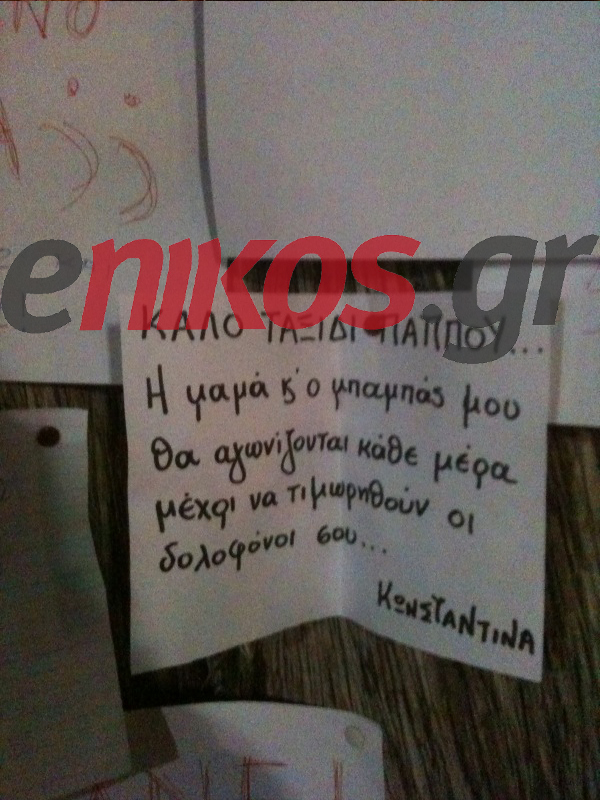 ΝΟ
enikos.gr
ΚΑΛΟ ΤΑΞΙΔΙ ΠΑΠΠΟΥ...
Η μαμά κ' ο μπαμπάς μου
θα αγωνίζονται κάθε μέρα
μέχρι να τιμωρηθούν οι
δολοφόνοι σου...
ΚΩΝΣΤΑΝΤΙΝΑ